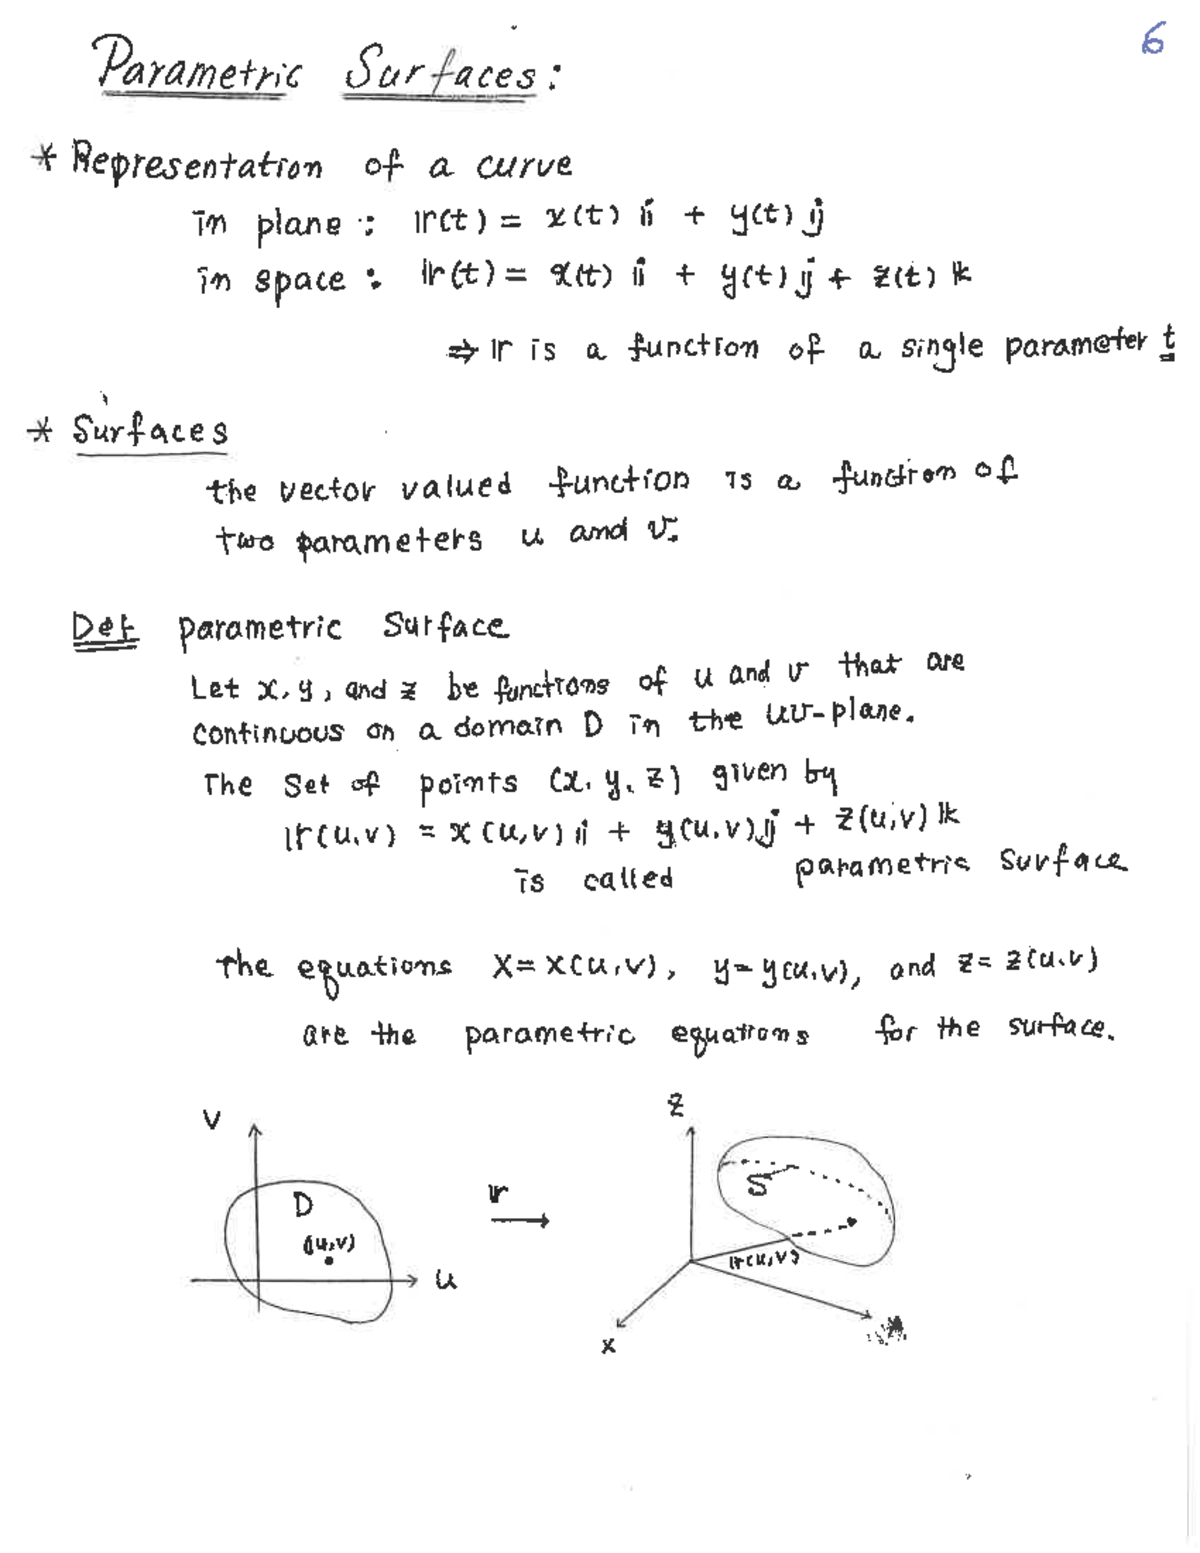 6
Parametric Surfaces:
* Representation of a curve
in plane : 𝕣(t) = x(t) 𝕚 + y(t) 𝕛
in space : 𝕣(t) = x(t) 𝕚 + y(t) 𝕛 + z(t) 𝕜
⇒ 𝕣 is a function of a single parameter t
* Surfaces
the vector valued function is a function of
two parameters u and v.
Def parametric Surface
Let x, y, and z be functions of u and v that are
continuous on a domain D in the uv-plane.
The Set of points (x, y, z) given by
𝕣(u,v) = x(u,v) 𝕚 + y(u,v) 𝕛 + z(u,v) 𝕜
is called parametric surface
The equations x = x(u,v), y = y(u,v), and z = z(u,v)
are the parametric equations for the surface.
v
D
(u,v)
u
𝕣
z
S
𝕣(u,v)
x